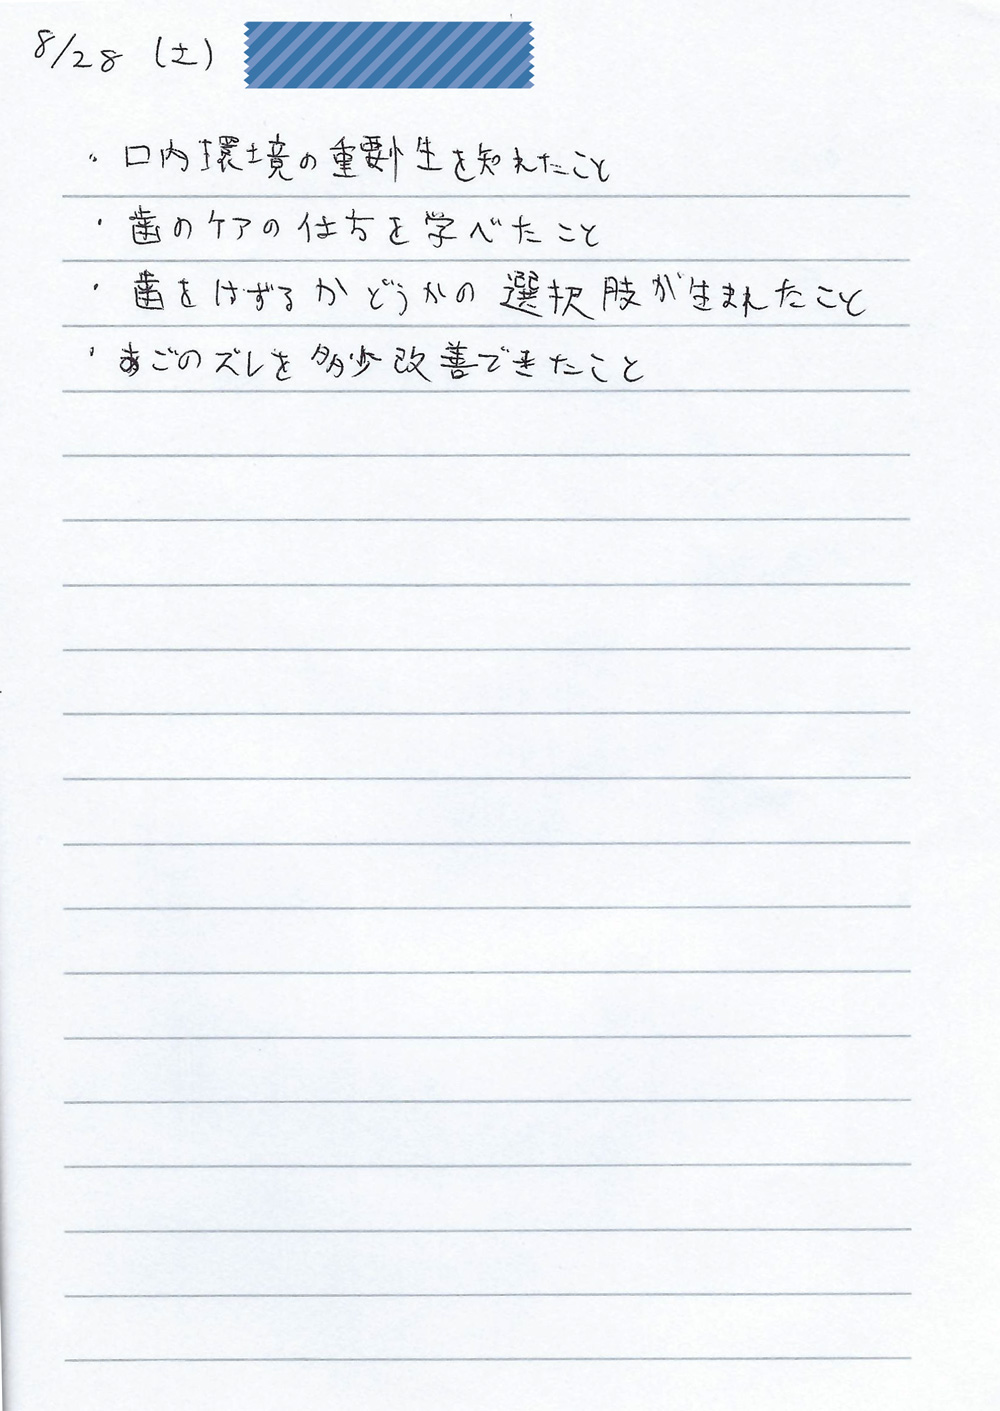 8/28 (土)
・口内環境の重要性を知れたこと
・歯のケアの仕方を学べたこと
・歯をはずるかどうかの選択肢が生まれたこと
・あごのズレを多少改善できたこと